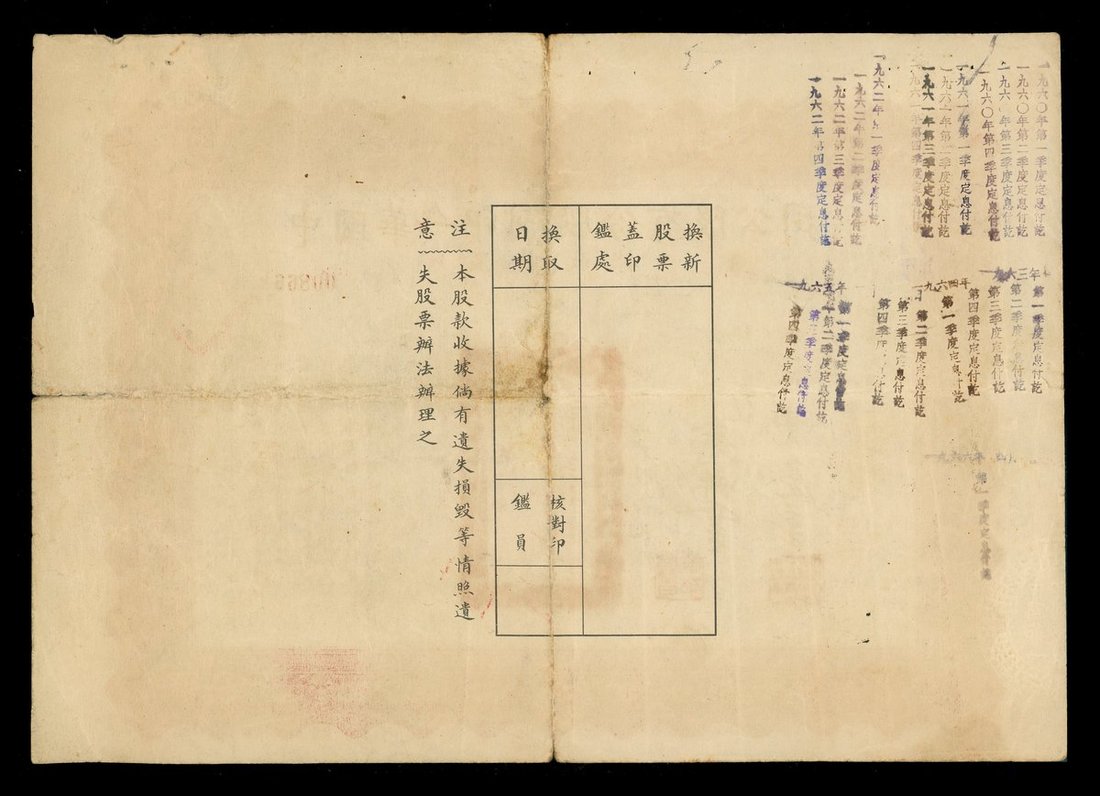 一九六〇年第一季度定息付訖
一九六〇年第二季度定息付訖
一九六〇年第三季度定息付訖
一九六〇年第四季度定息付訖
一九六一年第一季度定息付訖
一九六一年第二季度定息付訖
一九六一年第三季度定息付訖
一九六一年第四季度定息付訖
一九六二年第一季度定息付訖
一九六二年第二季度定息付訖
一九六二年第三季度定息付訖
一九六二年第四季度定息付訖
一九六三年
第一季度定息付訖
第二季度定息付訖
第三季度定息付訖
第四季度定息付訖
一九六四年
第一季度定息付訖
第二季度定息付訖
第三季度定息付訖
第四季度定息付訖
一九六五年
第一季度定息付訖
第二季度定息付訖
第三季度定息付訖
第四季度定息付訖
一九六六年
第一季度定息付訖
換新
股票
蓋印
鑑處
換取
日期
核對印
鑑員
注意
本股款收據倘有遺失損毀等情照遺
失股票辦法辦理之